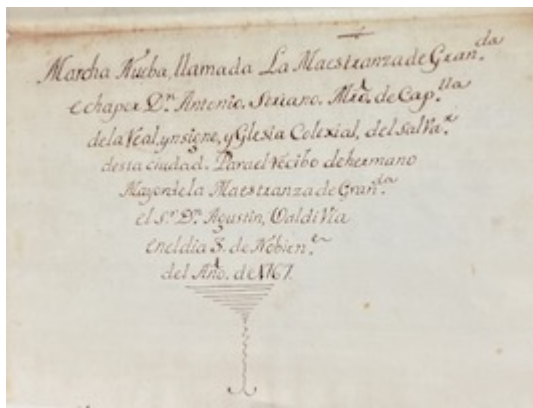 Marcha Nueba, llamada La Maestranza de Gran.da
echa por Dn. Antonio, Soriano. Mro. de Cap.lla
de la Real, ynsigne, y Yglesia Colexial, del Salva.r
desta ciudad. Para el recibo de hermano
Mayor de la Maestranza de Gran.da
el Sr. Dn. Agustin, Valdivia
en el dia 3. de Nobien.e
del Año. de 1767.